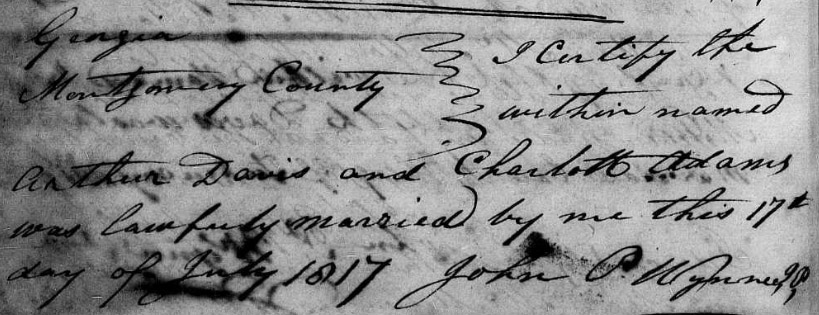 Georgia I Certify the
Montgomery County within named
Arthur Davis and Charlott Adams
was lawfuly married by me this 17th
day of July 1817 John P. Wynne J,P,